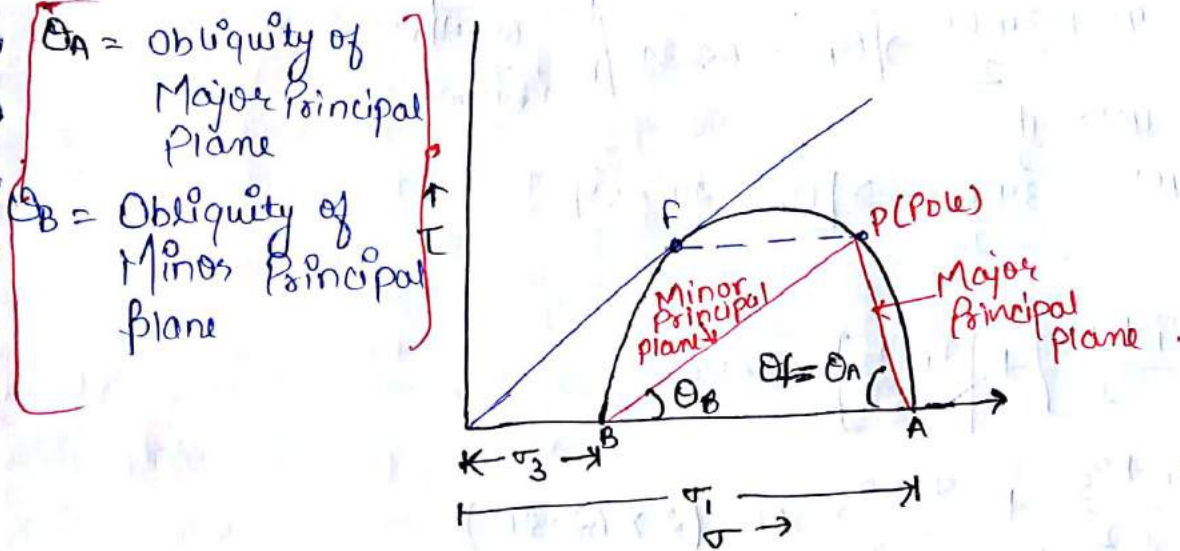 θA = Obliquity of
Major Principal
Plane
θB = Obliquity of
Minor Principal
plane
τ
F
P(Pole)
Minor
Principal
plane
Major
Principal
Plane
θB
θf = θA
B
A
σ3
σ1
σ